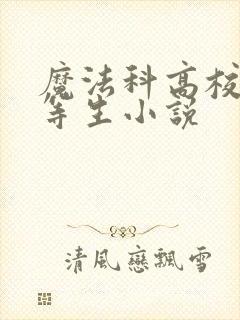 魔法科高校
等生小說
清風戀飄雪